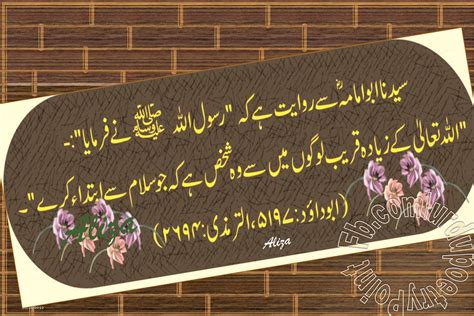 سیدنا ابو امامہؓ سے روایت ہے کہ "رسول اللہ ﷺ نے فرمایا":-
"اللہ تعالیٰ کے زیادہ قریب لوگوں میں سے وہ شخص ہے کہ جو سلام سے ابتداء کرے"۔
(ابوداؤد:۵۱۹۷، الترمذی:۲۶۹۴)
Aliza
Fb.com/urdupoetryPoint